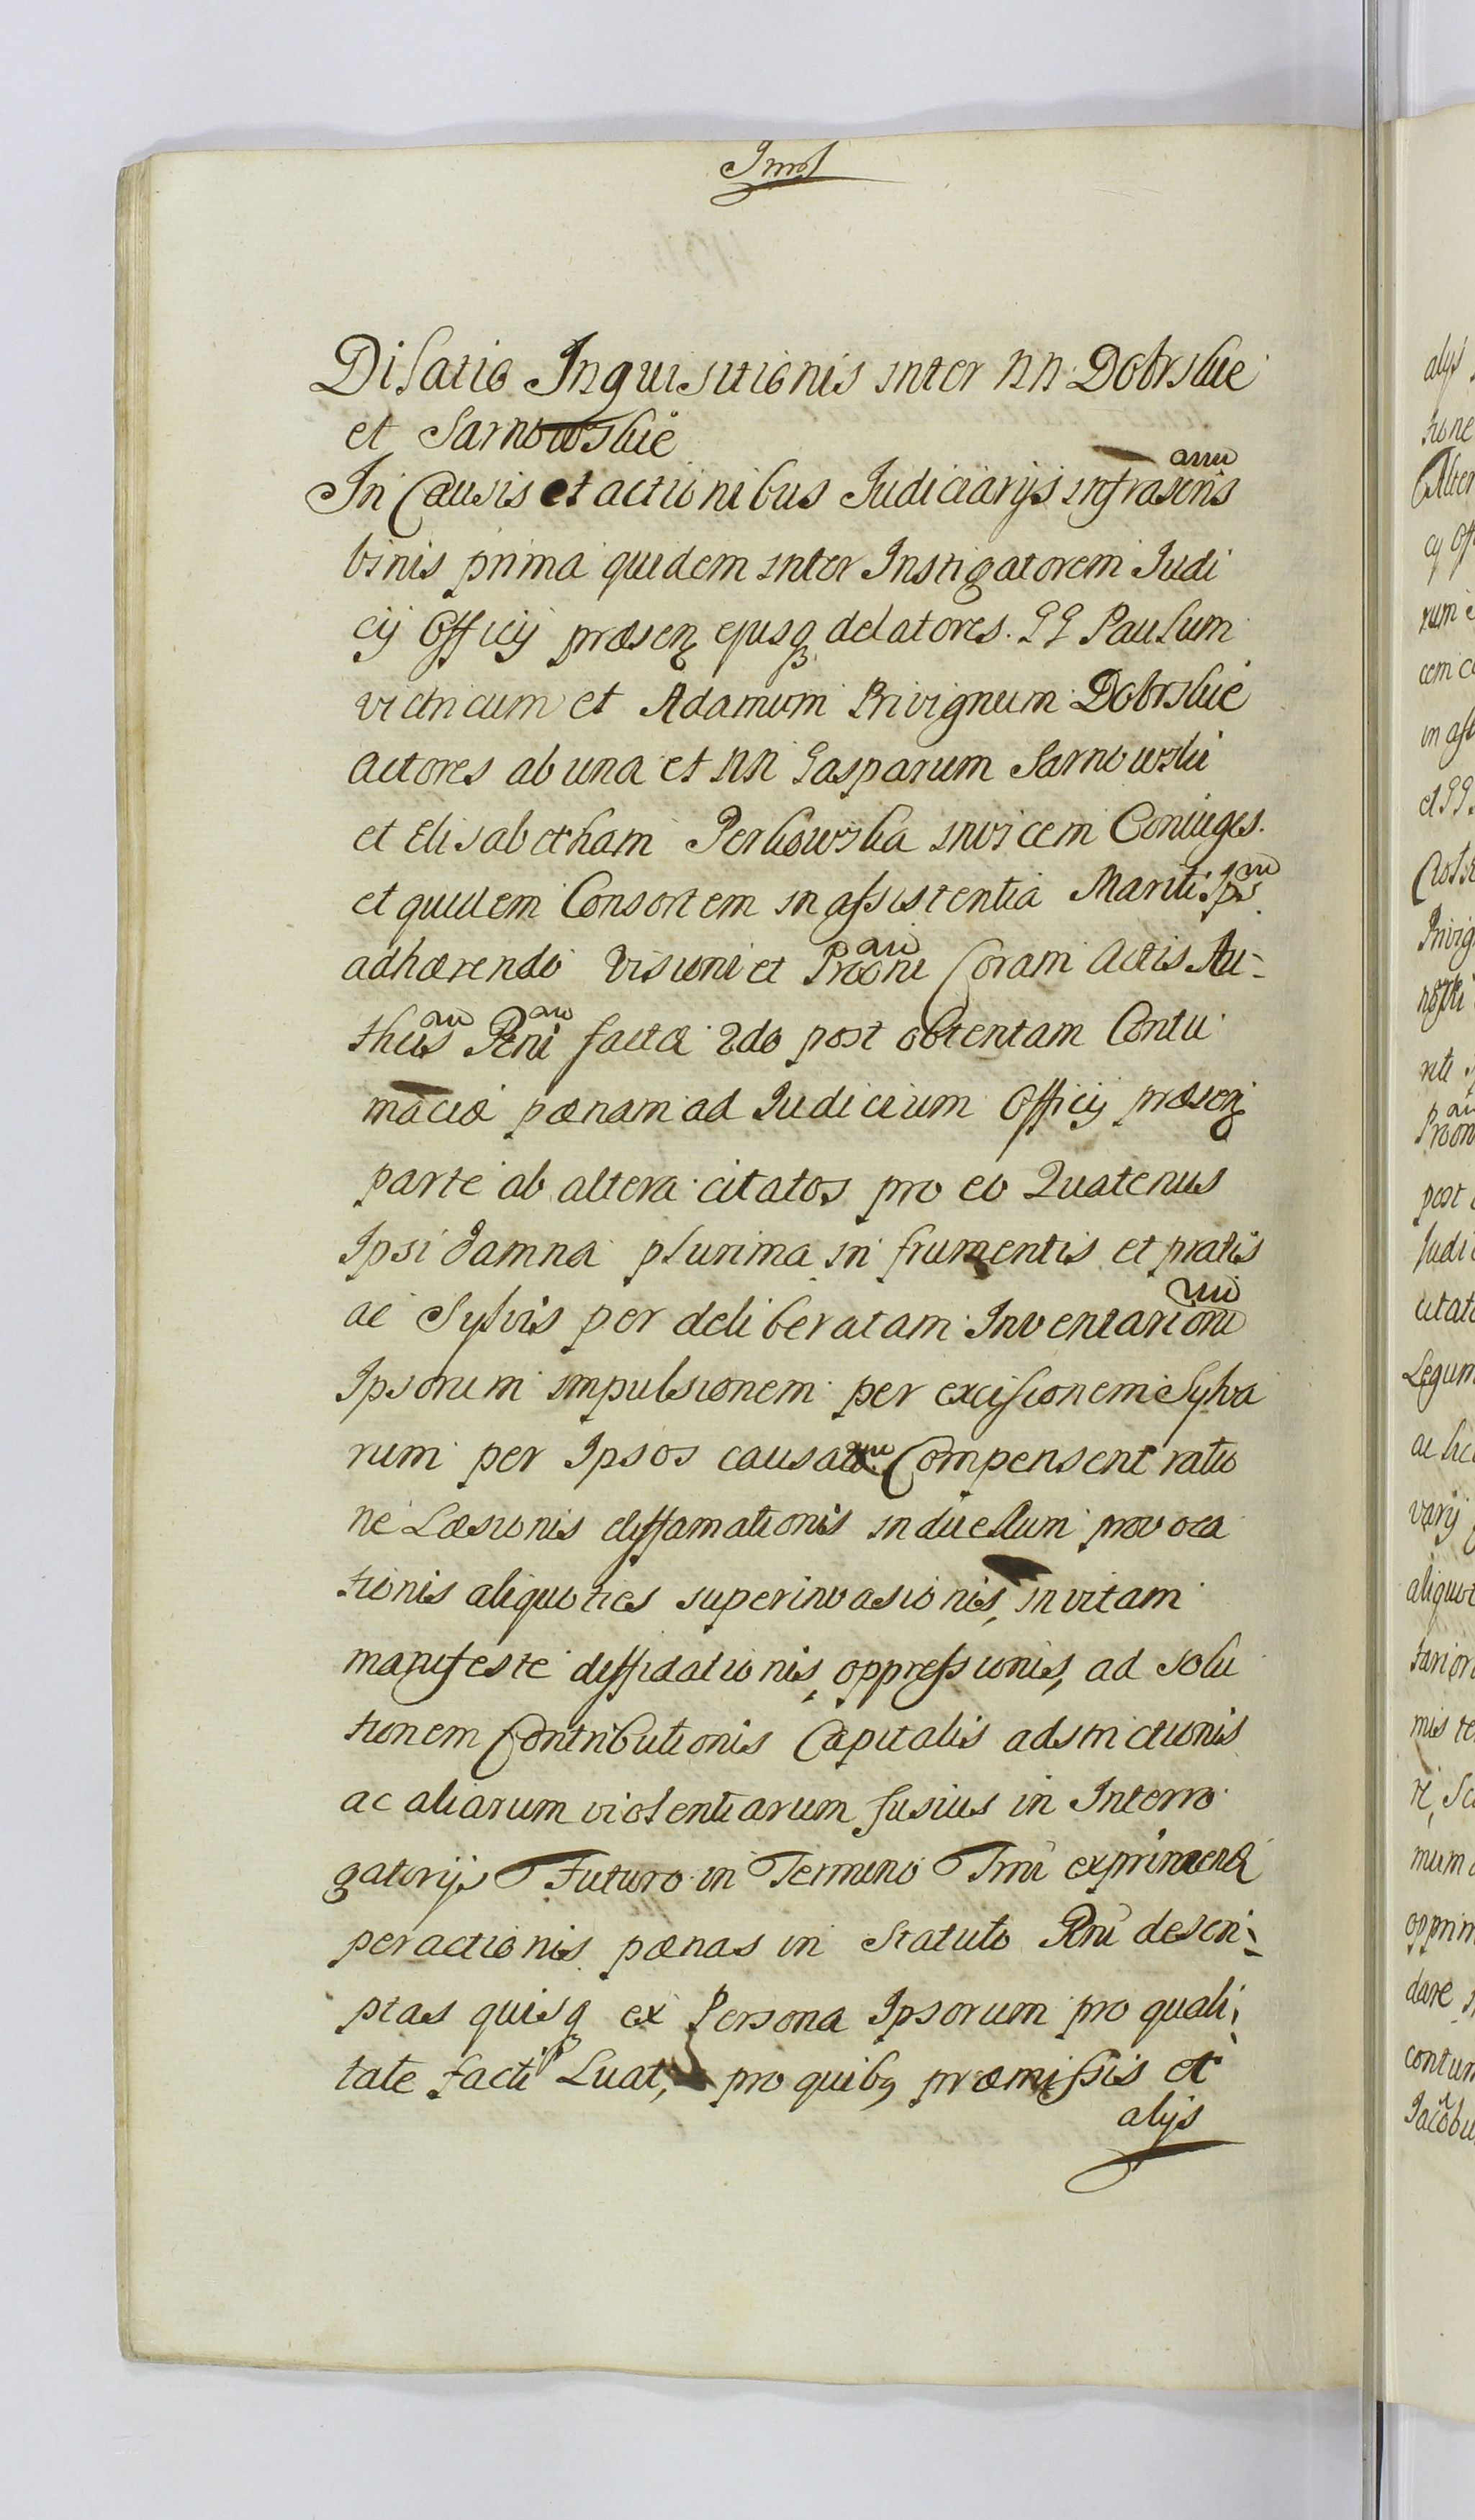 Dilatio Inquisitionis inter NN Dobrskie
et Sarnowskie
In Causis et actionibus Judiciarijs infrascris
binis prima quidem inter Instigatorem Judi
cij Officij præsen ejusq delatores. GG Paulum
victricum et Adamum Privignum Dobrskie
actores ab una et NN Gasparum Sarnowski
et Elisabetham Perkowska invicem Coniuges.
et quidem Consortem in assistentia Mariti
adhærendo Visioni et Proōni Coram Actis Au-
thcis Pcni factæ 2do post obtentam Contu
maciæ pænam ad Judicium Officij præsen
parte ab altera citatos pro eo Quatenus
Ipsi damna plurima in frumentis et pratis
ac Sylvis per deliberatam Inventarioru
Ipsorum impulsionem per excisionem Sylva
rum per Ipsos causata Compensent ratio
ne Læsionis diffamationis in duellum provoca
tionis aliquoties superinvasionis, in vitam
manifeste diffidationis, oppressionis, ad solu
tionem Contributionis Capitalis adstrictionis
ac aliarum violentiarum fusius in Interro
gatorijs Futuro in Termino Tmi exprimend
peractionis pænas in Statuto Rni descri-
ptas quisq ex Persona Ipsorum pro quali-
tate facti Luat, pro quibq præmissis et
alijs